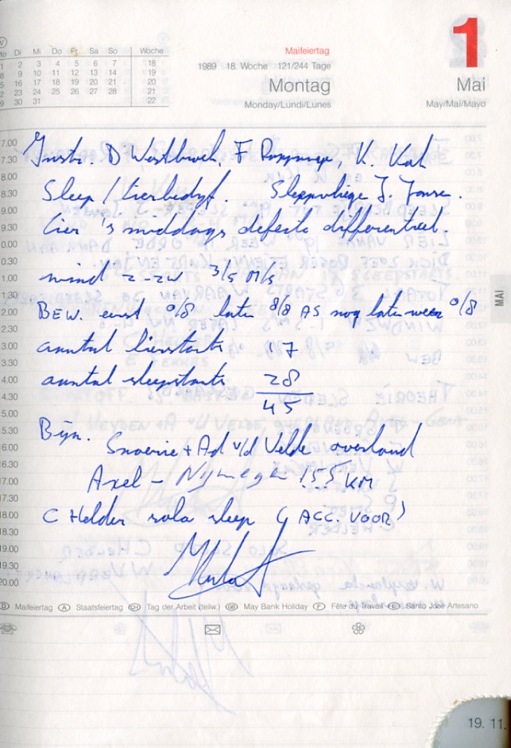 1
Maifeiertag
1989 18. Woche 121/244 Tage
Montag
Monday/Lundi/Lunes
Mai
May/Mai/Mayo
Mo Di Mi Do Fr Sa So Woche
1 2 3 4 5 6 7 18
8 9 10 11 12 13 14 19
15 16 17 18 19 20 21 20
22 23 24 25 26 27 28 21
29 30 31 22
Instr. D Westbroek, F K. Kat
Sleep / lierbedrijf. Sleepvlieger J.
Lier 's middags defecte differentieel.
wind Z-ZW 3/5 M/s
BEW. eerst 0/8 later 8/8 AS nog later weer 0/8
aantal lierstarts 17
aantal sleepstarts 28
45
Bijz. + Ad v/d Velde overland
Axel - Nijmegen 155 KM
C Helder solo sleep (ACC. VOOR)
7.00
7.30
8.00
8.30
9.00
9.30
0.00
0.30
1.00
1.30
2.00
2.30
3.00
3.30
4.00
4.30
5.00
5.30
16.00
16.30
17.00
17.30
18.00
18.30
19.00
19.30
20.00
MAI
D Maifeiertag A Staatsfeiertag CH Tag der Arbeit (teilw.) GB May Bank Holiday F Fête du Travail E Santo José Artesano
19. 11.